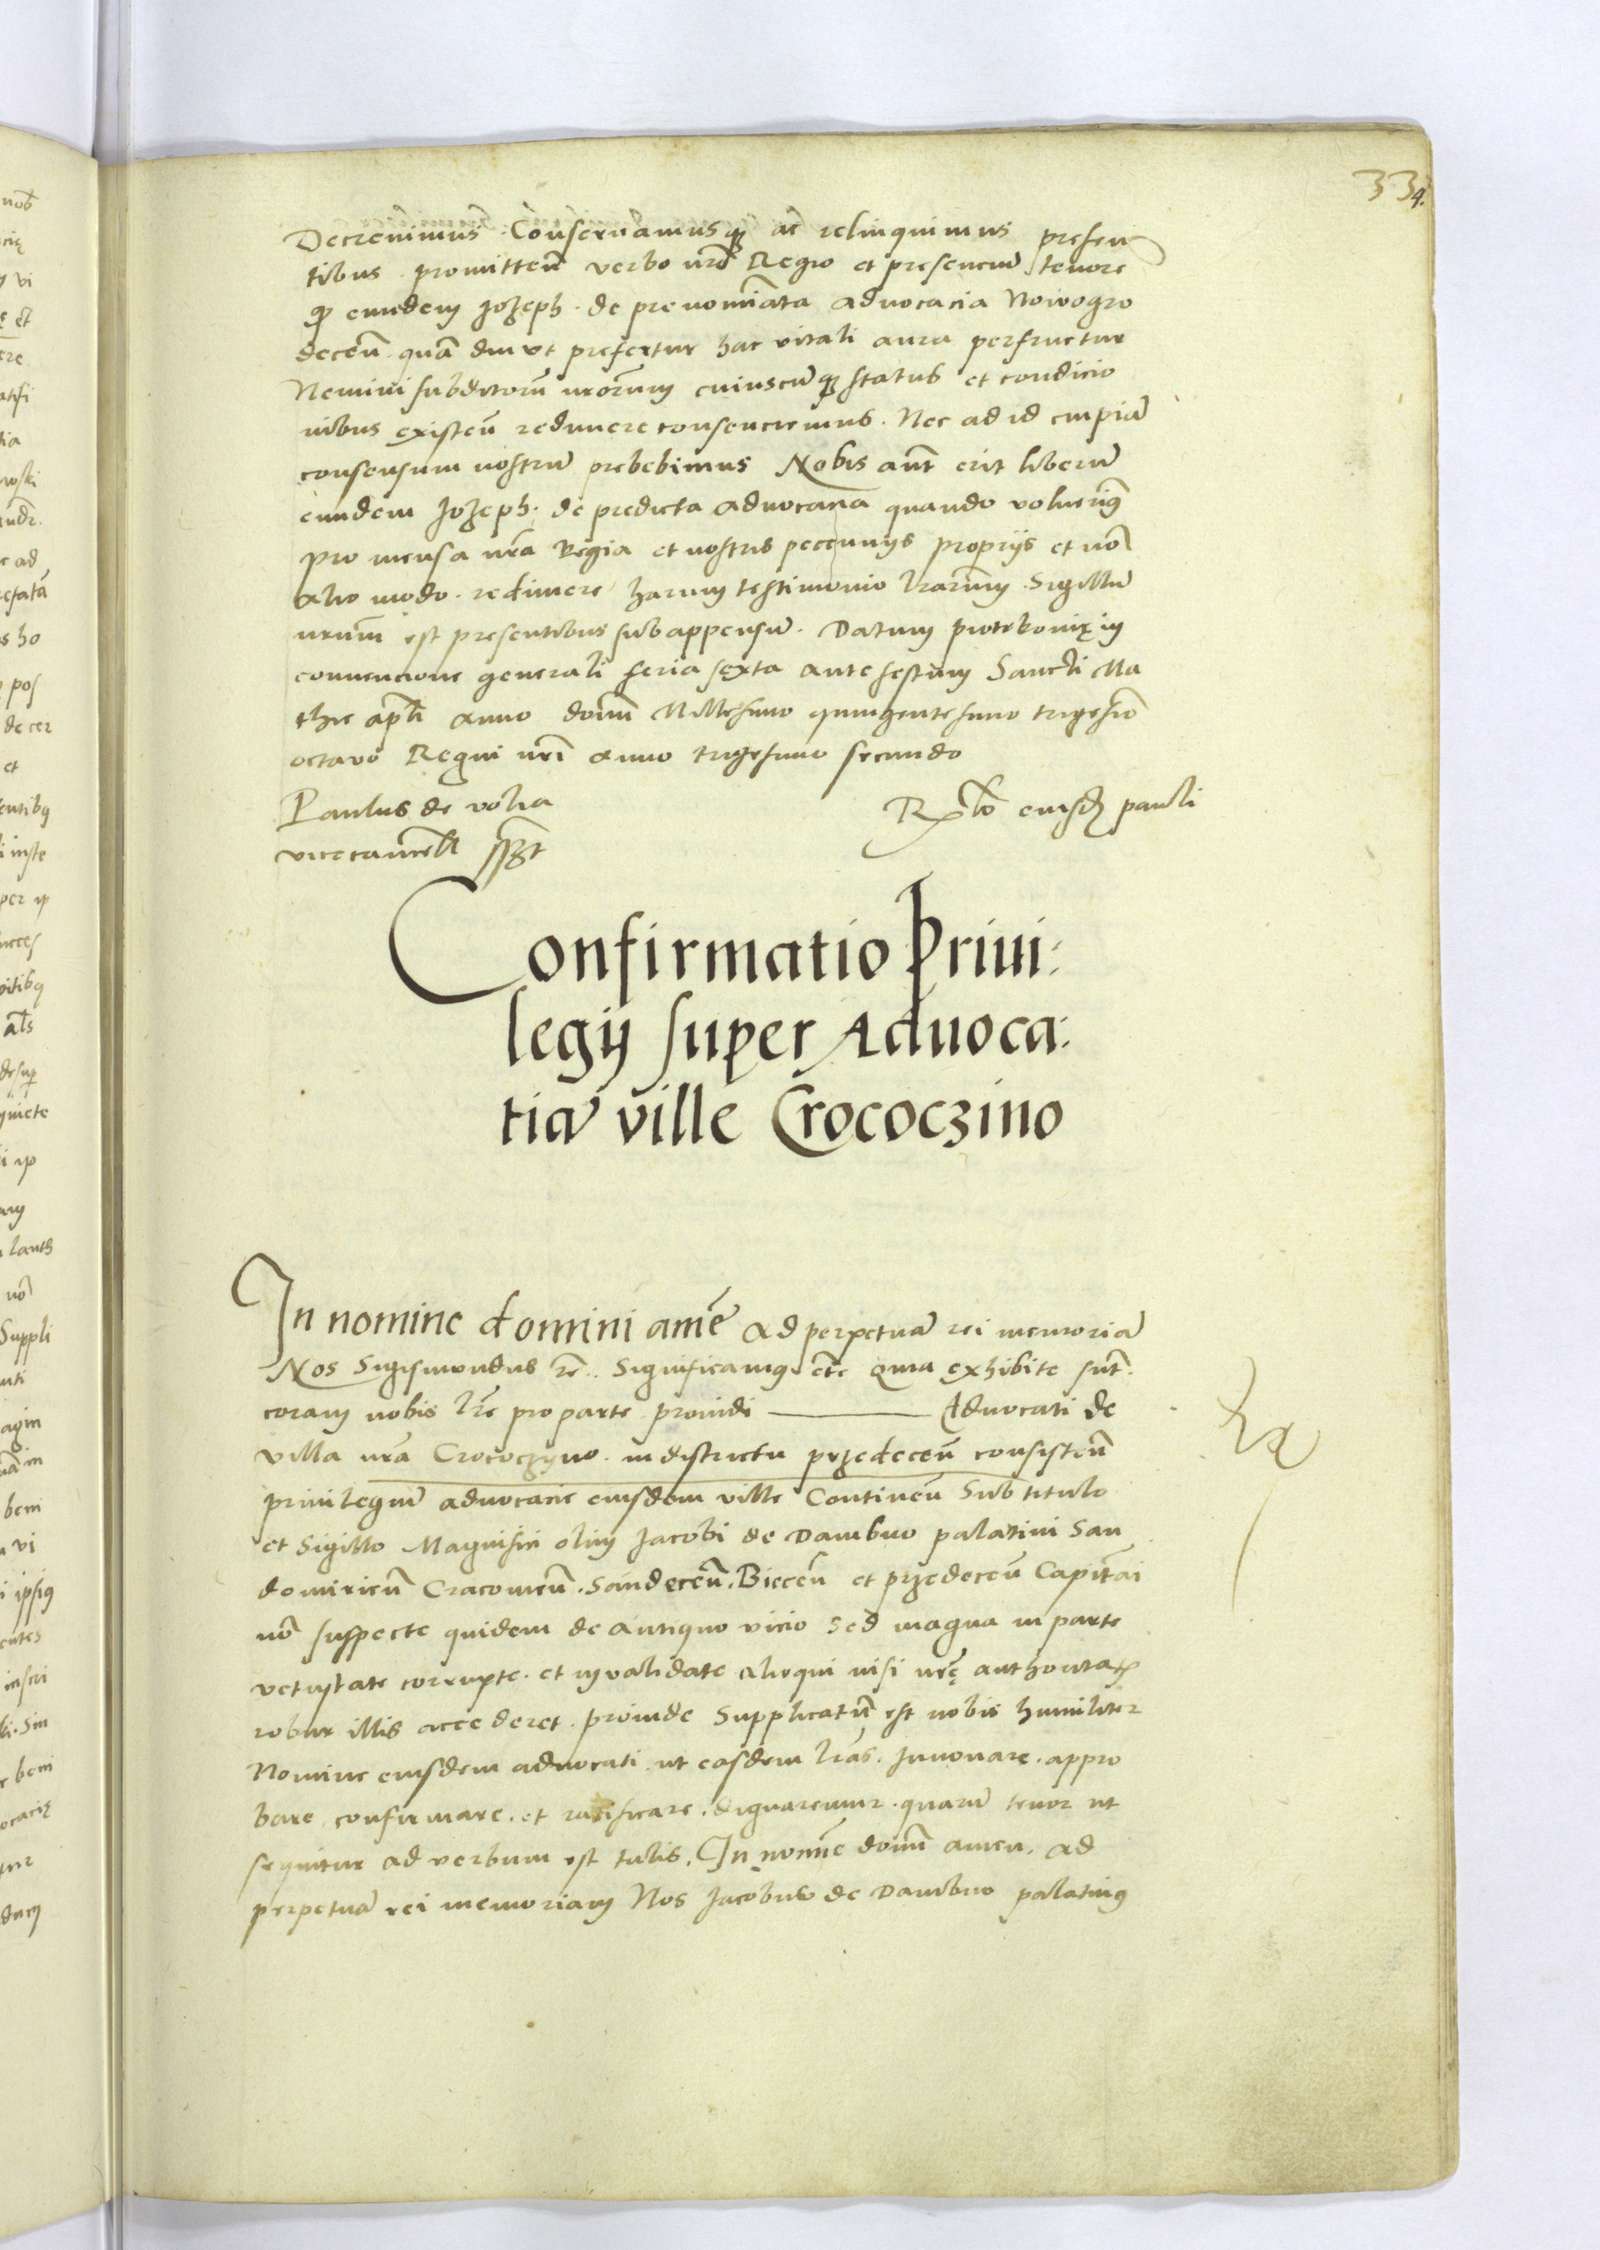 334.
Decrevimus. Conservamusq3 ac relinquimus presen
tibus. promitten̄ verbo nr̄o Regio et presencium tenore
q3 eundem Jozeph. de prenomīata advocacia Nowogro
decen̄. quā diu vt prefertur hac vitali aura perfruetur
Nemini subditorū nrōrum cuiuscūq3 status et condicio
nibus existen̄ redimere consenciemus. Nec ad id cuipiā
consensum nostrū prebebimus Nobis aūt erit liberū
eundem Jozeph. de predicta advocatia quando volueriꝰ
pro mensa nr̄a Regia et nostris peccunijs proprijs et nō
alio modo. redimere harum testimonio lr̄arum. Sigillū
nrūm est presentibus subappensū. Datum piotrkovię in
convencione generali feria sexta ante festum Sancti Ma
thie apl̄i anno domī Millesimo quingentesimo trigesīo
octavo Regni nrī anno trigesimo secundo
Paulus de volia
vicecancell̄ sszt
Rlo eiusd pauli
Confirmatio Priui:
legij super Aduoca:
tia ville Crococzino
In nomine domini amē ad perpetuā rei memoriā
Nos Sigismundus rē.. Significamꝰ etc̄ Quia exhibite sūt.
coram nobis lr̄e pro parte providi ——— Advocati de
villa nr̄a Crococzyno. in districtu przedecen̄ consisten̄
privilegiū advocacie eiusdem ville Continen̄ Sub titulo
et Sigillo Magnifici olim Jacobi de Dambno palatini San
domiricn̄ Cracovien̄. Sandecen̄. Biecen̄ et przedecen̄ Capitāi
nō suspecte quidem de antiquo vicio Sed magna in parte
vetustate corrupte. et invalidate alioqui nisi nrę authoritatꝭ
robur illis accederet. proinde Supplicatū est nobis humiliter
Nomine eiusdem advocati. ut easdem lr̄as. Innovare. appro
bare confirmare. et ratificare. dignaremur. quarū tenor ut
sequitur ad verbum est talis. In nomīe domī amen. ad
perpetuā rei memoriam Nos Jacobus de Dambno palatinꝰ